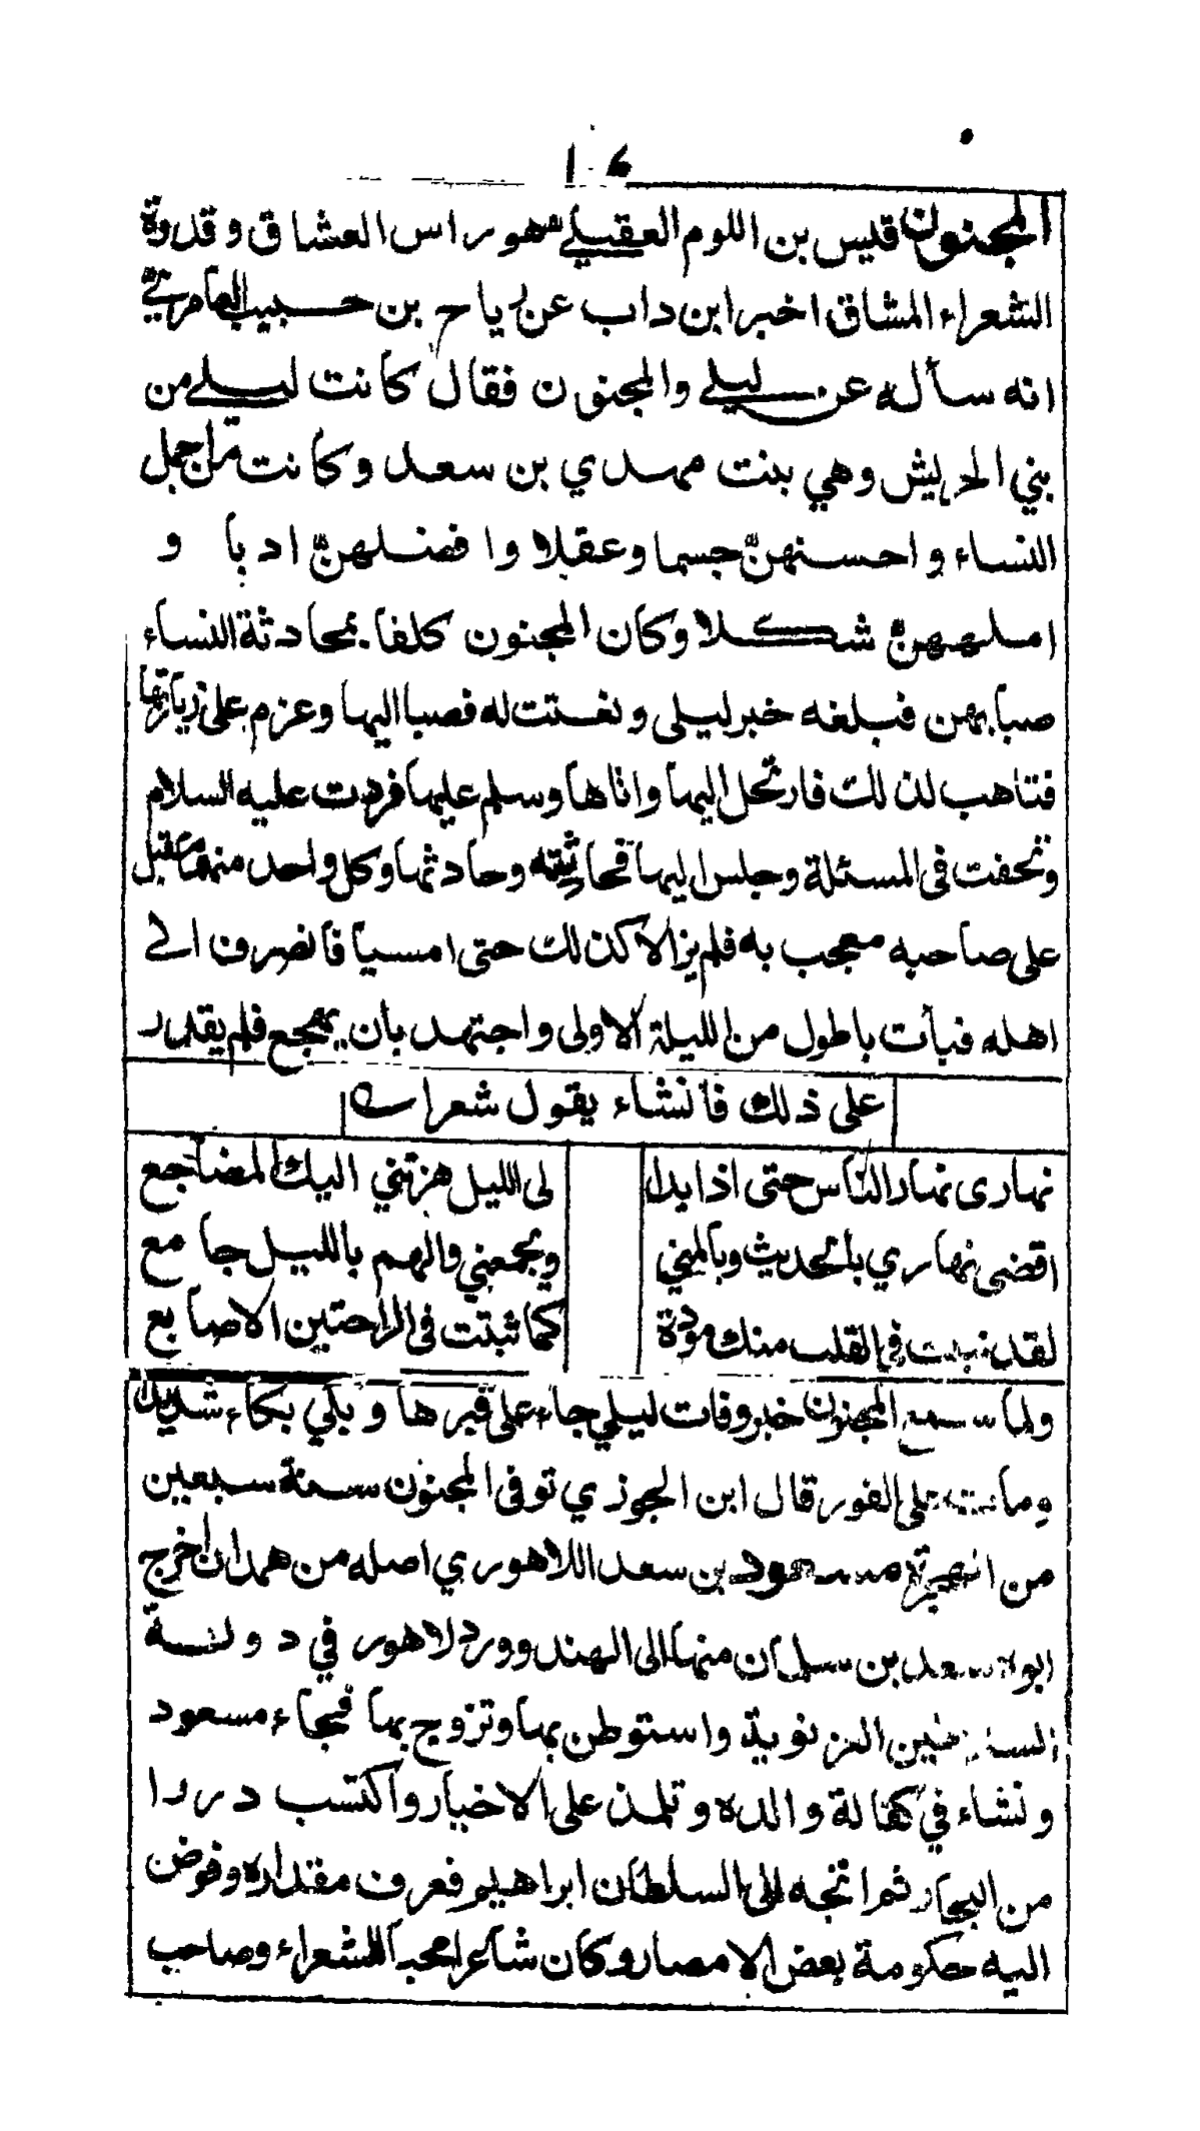 المجنون قيس بن اللوم العقيلي هو راس العشاق و قدوة
الشعراء المشاق اخبر ابن داب عن رياح بن حبيب العامري
انه سأله عن ليلي والمجنون فقال كانت ليلي من
بني الحريش وهي بنت مهدي بن سعد وكانت من اجمل
النساء و احسنهنّ جسما وعقلا وا فضلهنّ ادباً و
املههنّ شكلا وكان المجنون كلفا بمحادثة النساء
صبا بهن فبلغه خبر ليلى و نعتت له فصبا اليها وعزم على زيارتها
فتاهب لذلك فارتحل اليها واتاها وسلم عليها فردت عليه السلام
وتحفت فى المسئلة وجلس اليها فحادثته وحادثها وكل واحد منهما مقبل
على صاحبه معجب به فلم يزالا كذلك حتى امسيا فانصرف الى
اهله فبات باطول من الليلة الاولى واجتهد بان يهجع فلم يقدر
على ذلك فانشاء يقول شعرا
نهارى نهار الناس حتى اذا بدا لى الليل هزتني اليك المضاجع
اقضى نهاري بالحديث وبالمني ويجمعني والهم بالليل جامع
لقد نبتت في القلب منك مودة كما ثبتت فى الراحتين الاصابع
ولما سمع المجنون خبر وفات ليلي جاء على قبرها و بكي بكاء شديدا
ومات على الفور قال ابن الجوزي توفى المجنون سنة سبعين
من الهجرة مسعود بن سعد اللاهوري اصله من همدان اخرج
ابوه سعد بن سلمان منها الى الهند وورد لاهور في دولة
السلاطين الغزنوية واستوطن بها وتزوج بها فجاء مسعود
ونشاء في كفالة والده وتلمذ على الاخيار واكتسب دررا
من البحار ثم اتجه الى السلطان ابراهيم فعرف مقداره وفوض
اليه حكومة بعض الامصار وكان شاعرا محبا للشعراء وصاحب